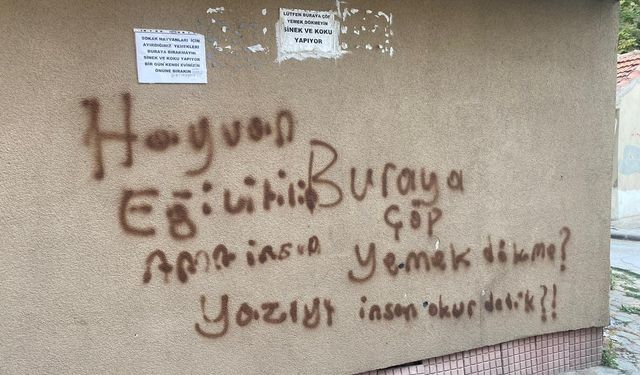 SOKAK HAYVANLARI İÇİN
AYIRDIĞINIZ YEMEKLERİ
BURAYA BIRAKMAYIN
SİNEK VE KOKU YAPIYOR
BİR GÜN KENDİ EVİNİZİN
ÖNÜNE BIRAKIN
LÜTFEN BURAYA ÇÖP
YEMEK DÖKMEYİN
SİNEK VE KOKU
YAPIYOR
Hayvan
Buraya
Eğivitilir
ÇÖP
AMA insan yemek dökme?
yazıyı insan okur dedik?!